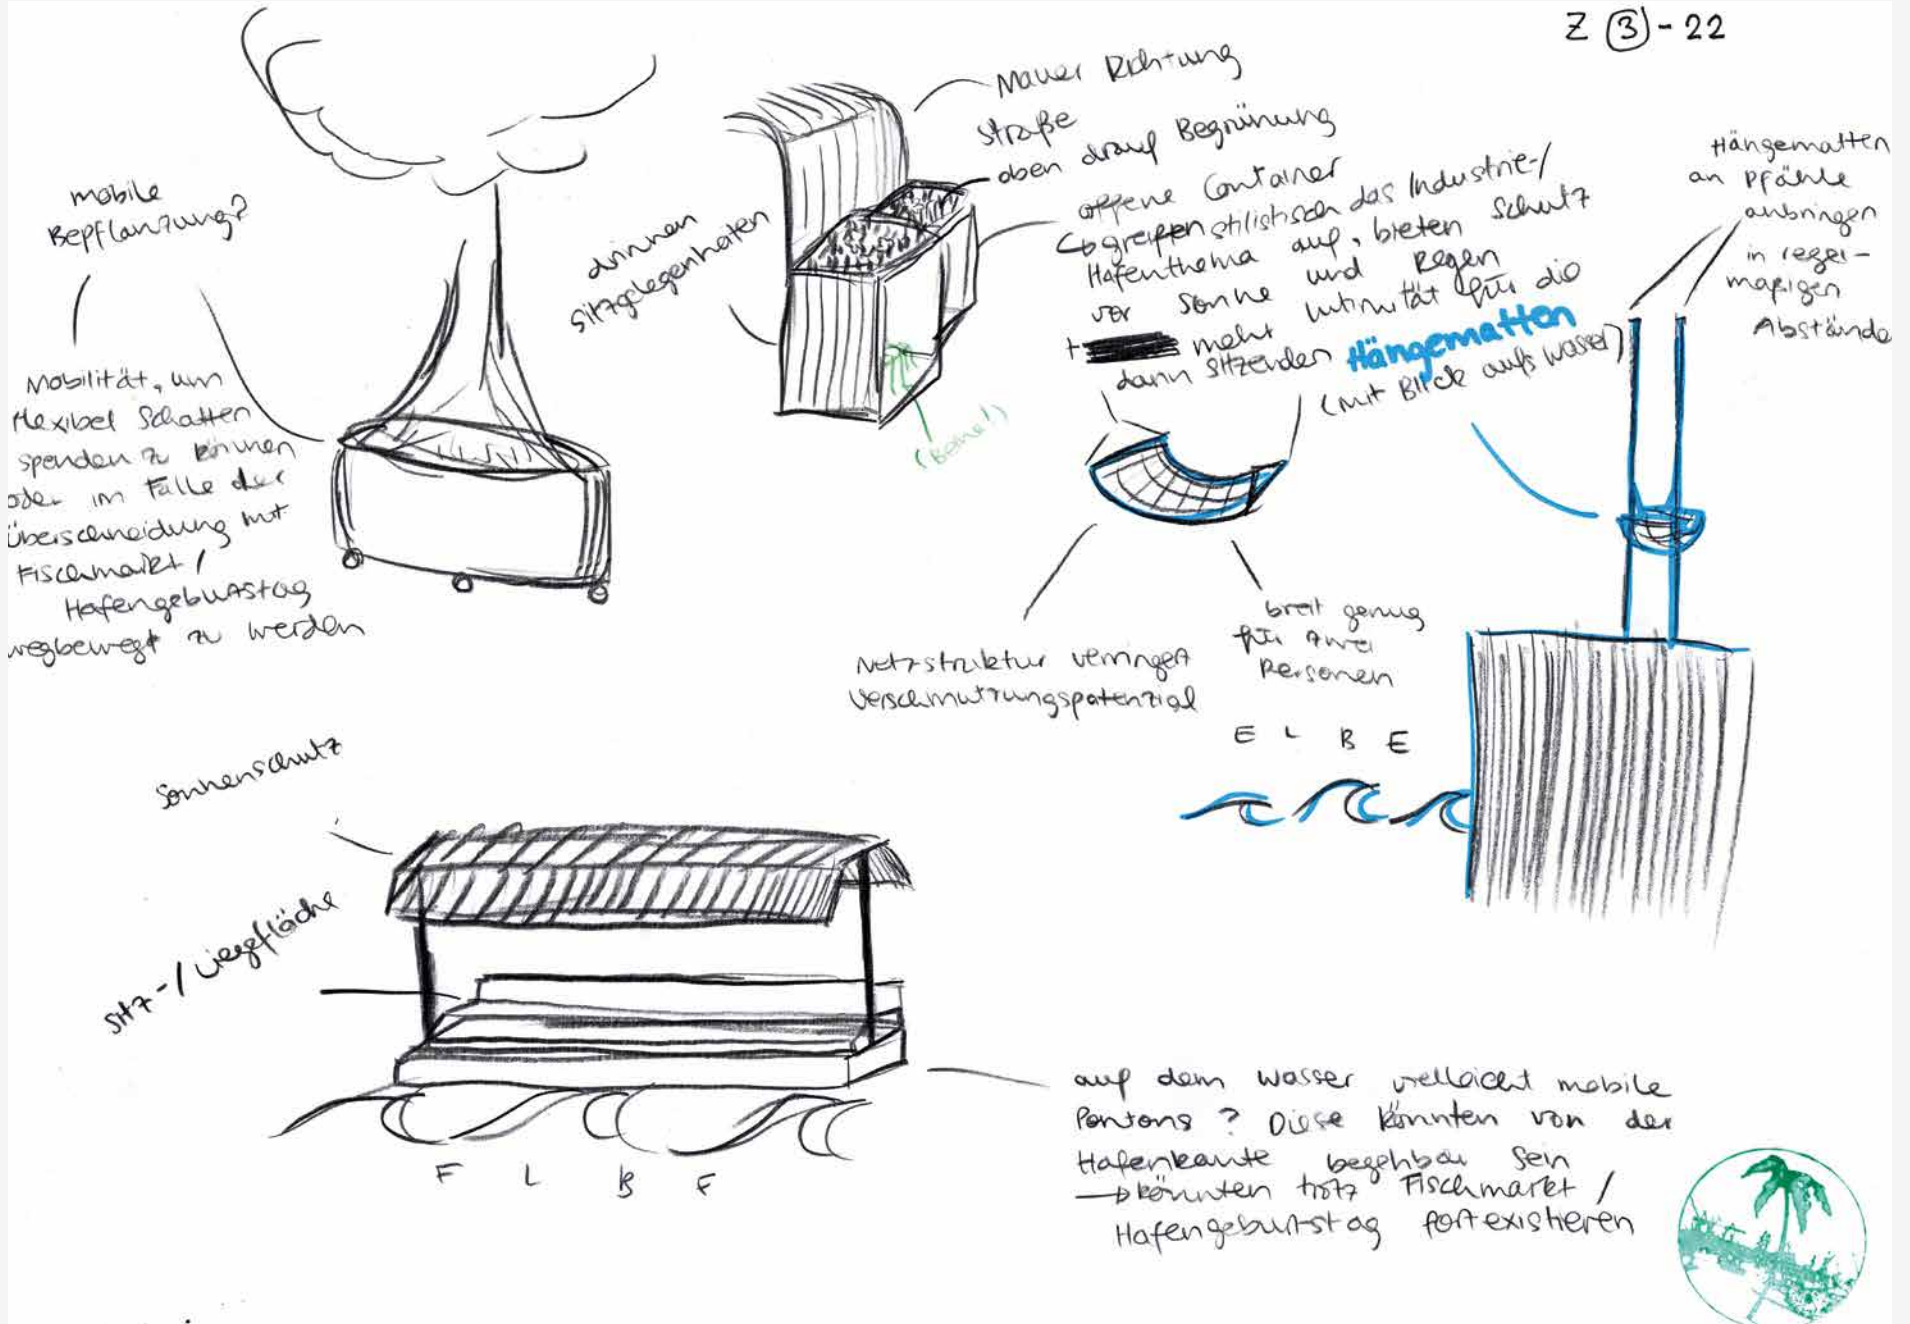 Z ③ - 22
mobile
Bepflanzung?
Mobilität, um
flexibel Schatten
spenden zu können
oder im Falle der
Überschneidung mit
Fischmarkt /
Hafengeburtstag
wegbewegt zu werden
drinnen
Sitzgelegenheiten
Mauer Richtung
Straße
oben drauf Begrünung
offene Container
↳ greifen stilistisch das Industrie-/
Hafenthema auf, bieten Schutz
vor Sonne und Regen
+ mehr Intimität für die
darin sitzenden
(Beine!)
Hängematten
(mit Blick aufs Wasser)
Hängematten
an Pfähle
anbringen
in regel-
mäßigen
Abstände
Netzstruktur verringert
Verschmutzungspotenzial
breit genug
für zwei
Personen
E L B E
Sonnenschutz
Sitz-/Liegefläche
E L B E
auf dem Wasser vielleicht mobile
Pontons? Diese könnten von der
Hafenkante begehbar sein
→ könnten trotz Fischmarkt /
Hafengeburtstag fortexistieren